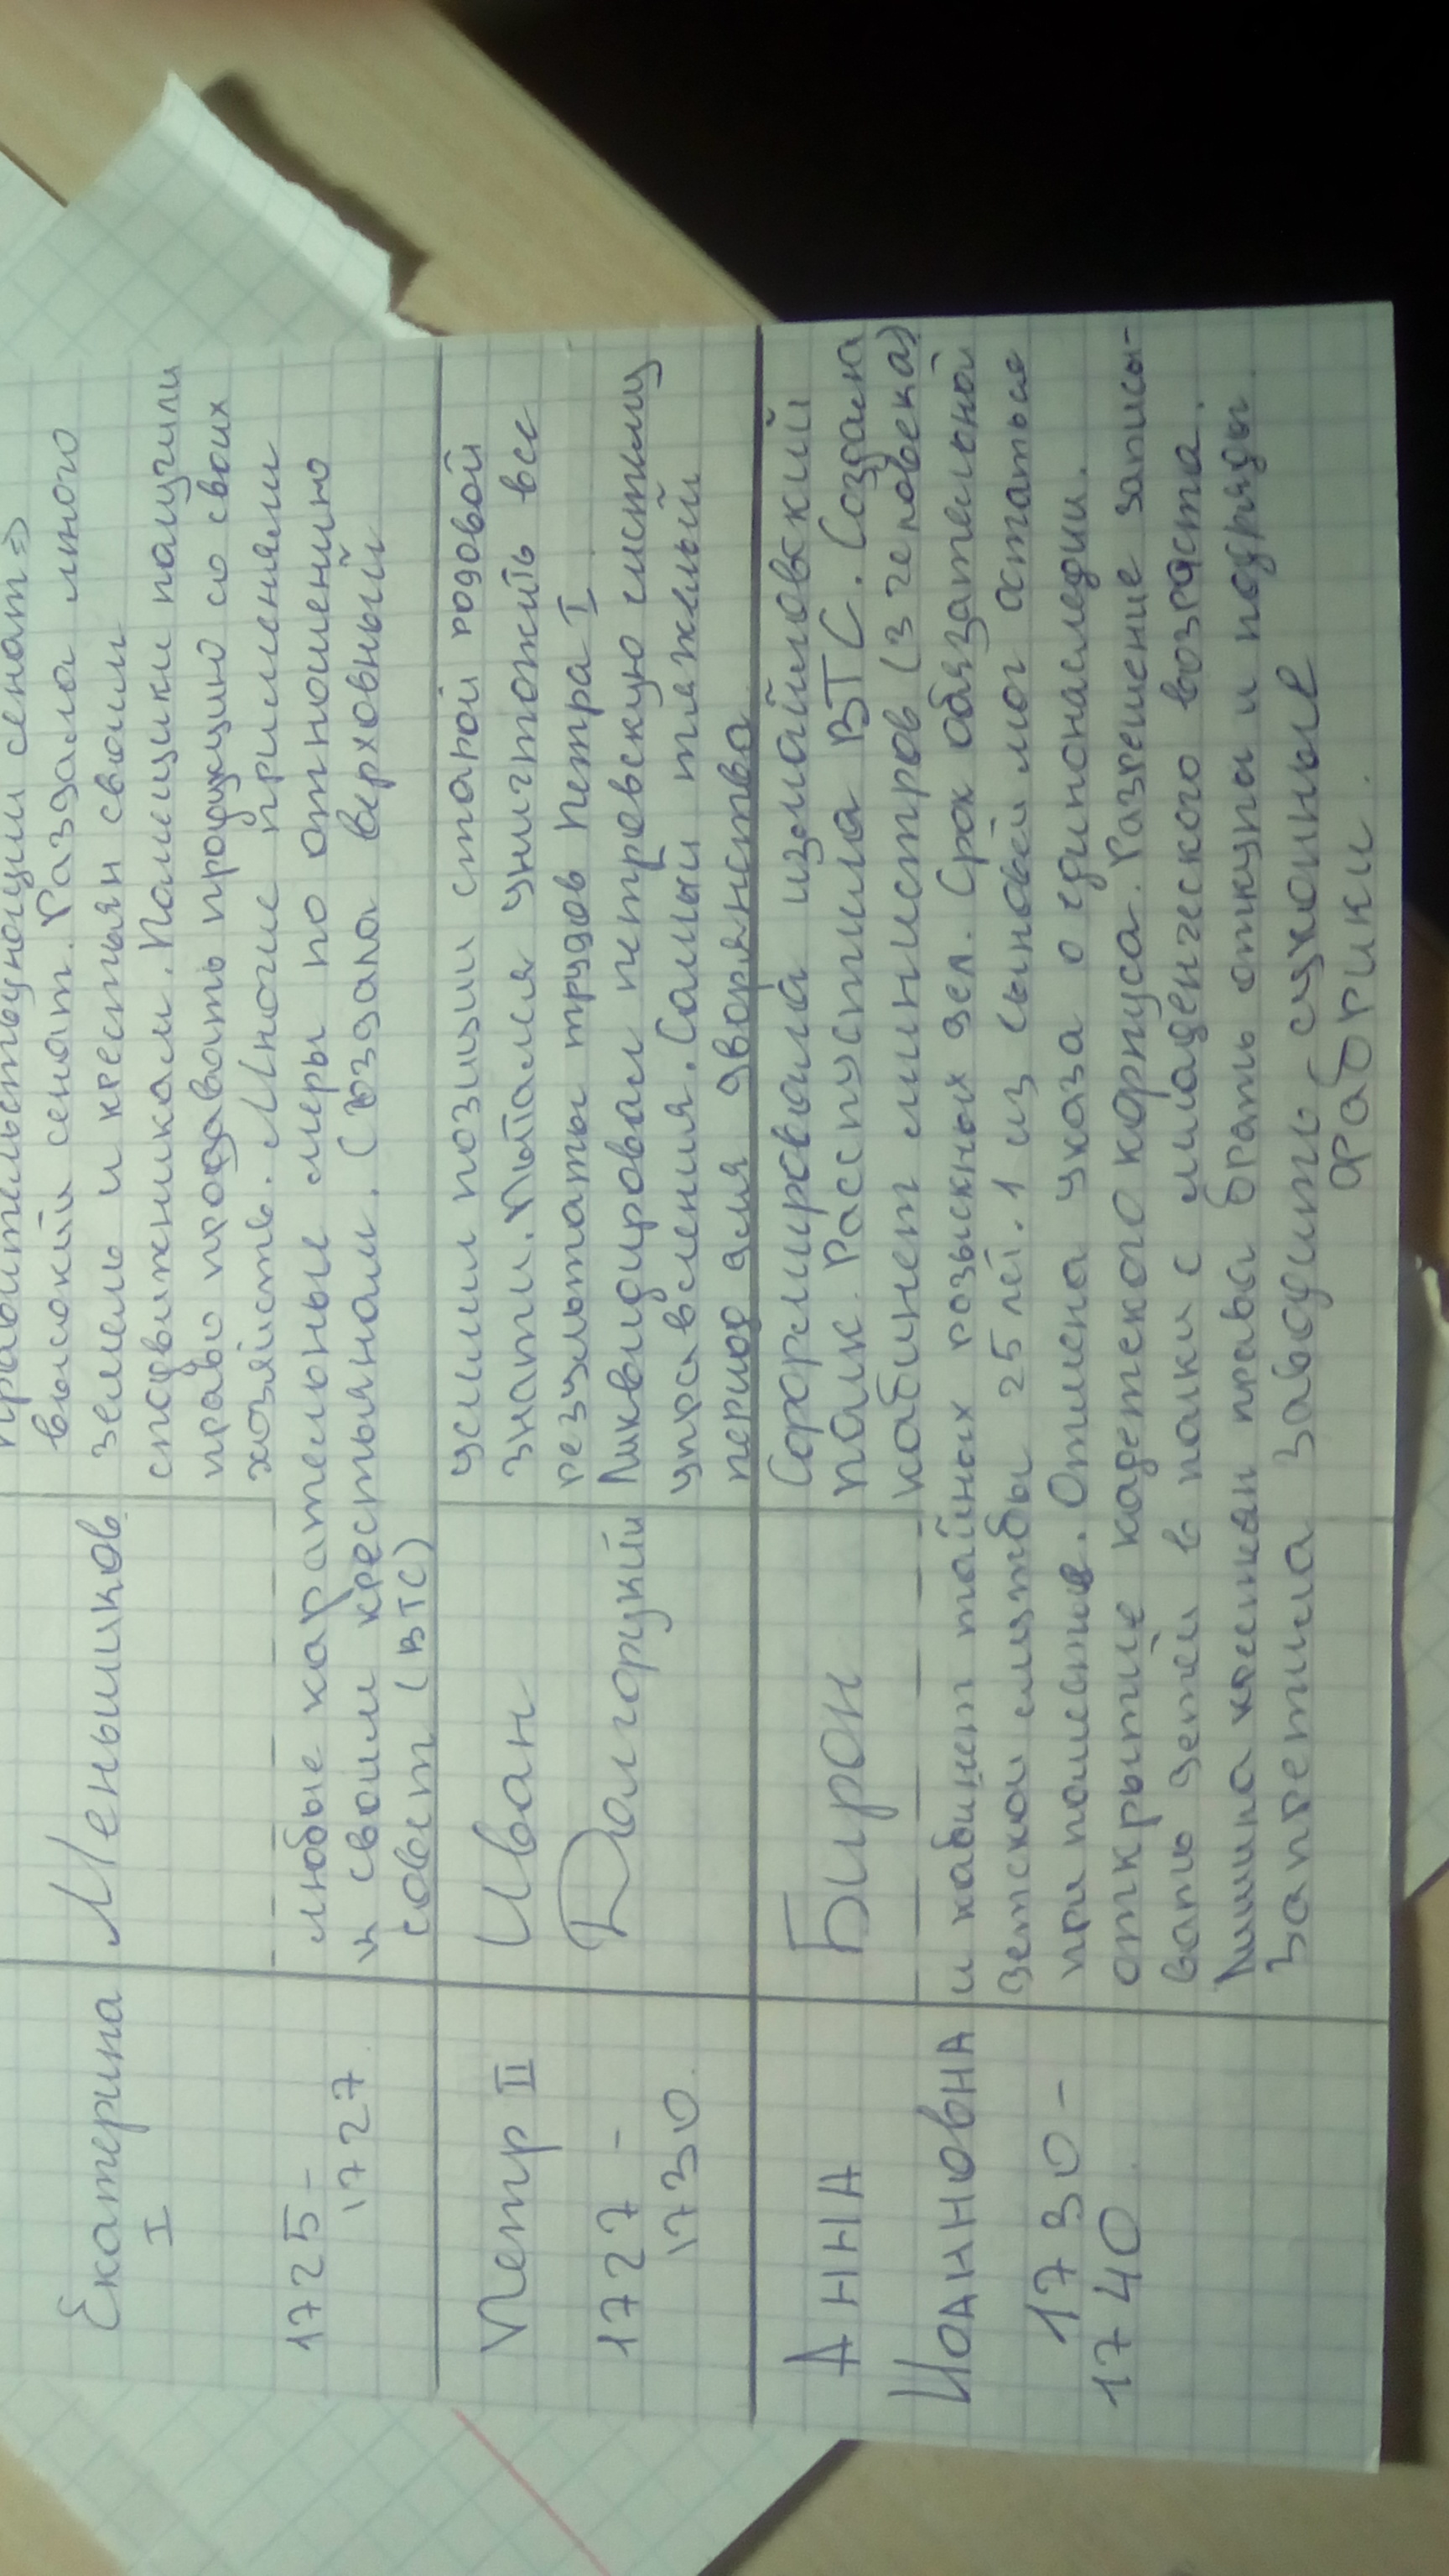 Екатерина
I
1725-
1727.
Меньшиков.
правительствующий сенат =>
высокий сенат. Раздала много
земель и крестьян своим
сподвижникам. Помещики получили
право продавать продукцию со своих
хозяйств. Многие применяли
любые карательные меры по отношению
к своим крестьянам. Создала Верховный
совет (ВТС)
Петр II
1727-
1730.
Иван
Долгорукий
усилил позиции старой родовой
знати. Пытался уничтожить все
результаты трудов Петра I
Ликвидировал петревскую систему
управления. Самый тяжелый
период для дворянства.
АННА
ИОАННОВНА
1730-
1740.
Бирон
Сформировала измайловский
полк. Распустила ВТС. Создана
кабинет министров (3 человека)
и кабинет тайных розыскных дел. Срок обязательной
службы 25 лет. 1 из сыновей мог остаться
при поместье. Отмена указа о единонаследии.
открытие кадетского корпуса. Разрешение записы-
вать детей в полки с младенческого возраста.
Лишила крестьян права брать откупы и подряды.
Запретила заводить суконные
фабрики.